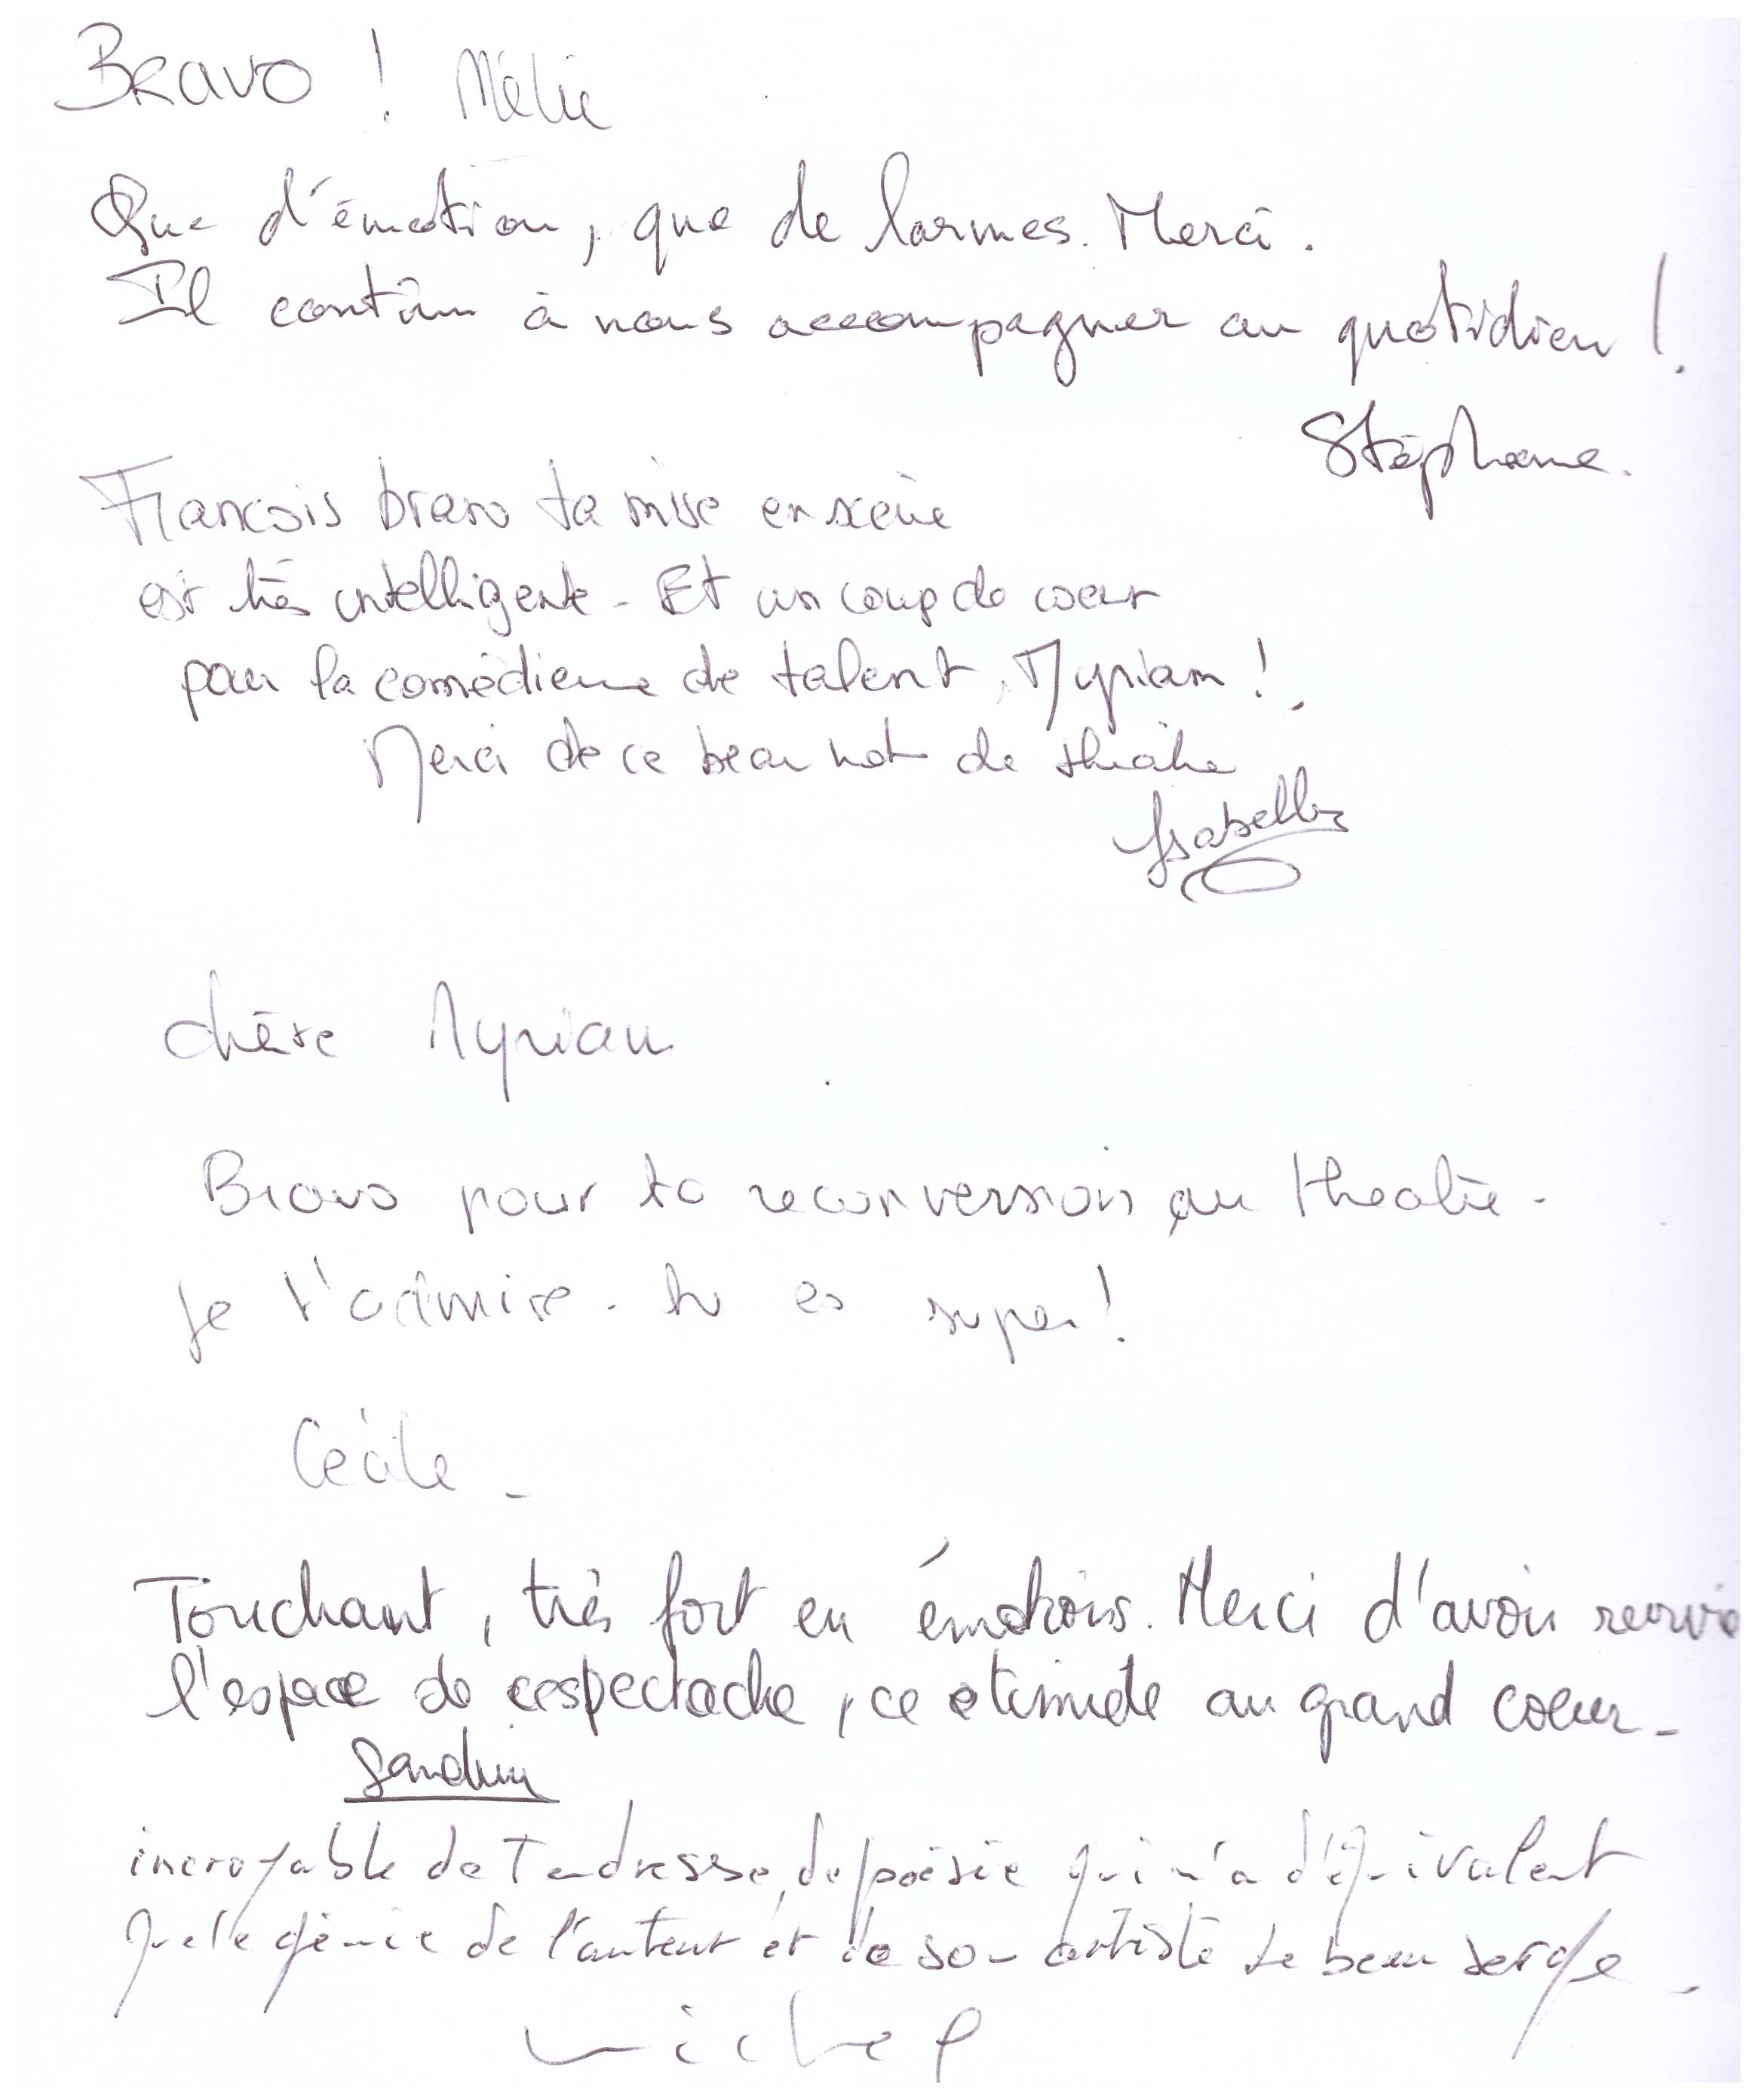 Bravo ! Mélie
Que d'émotion, que de larmes. Merci.
Il continu à nous accompagner au quotidien !
Stéphane.
François bravo ta mise en scène
est très intelligente - Et un coup de coeur
pour la comédienne de talent, Myriam !
Merci de ce beau mot de théâtre
Isabelle
chère Myriam
Bravo pour ta reconversion au theatre -
Je t'admire - tu es super !
Cécile -
Touchant, très fort en émotions. Merci d'avoir
l'espace de ce spectacle, ce au grand coeur -
incroyable de Tendresse, de poésie qui n'a d'équivalent
que le génie de l'auteur et de son artiste le beau serge -
michel